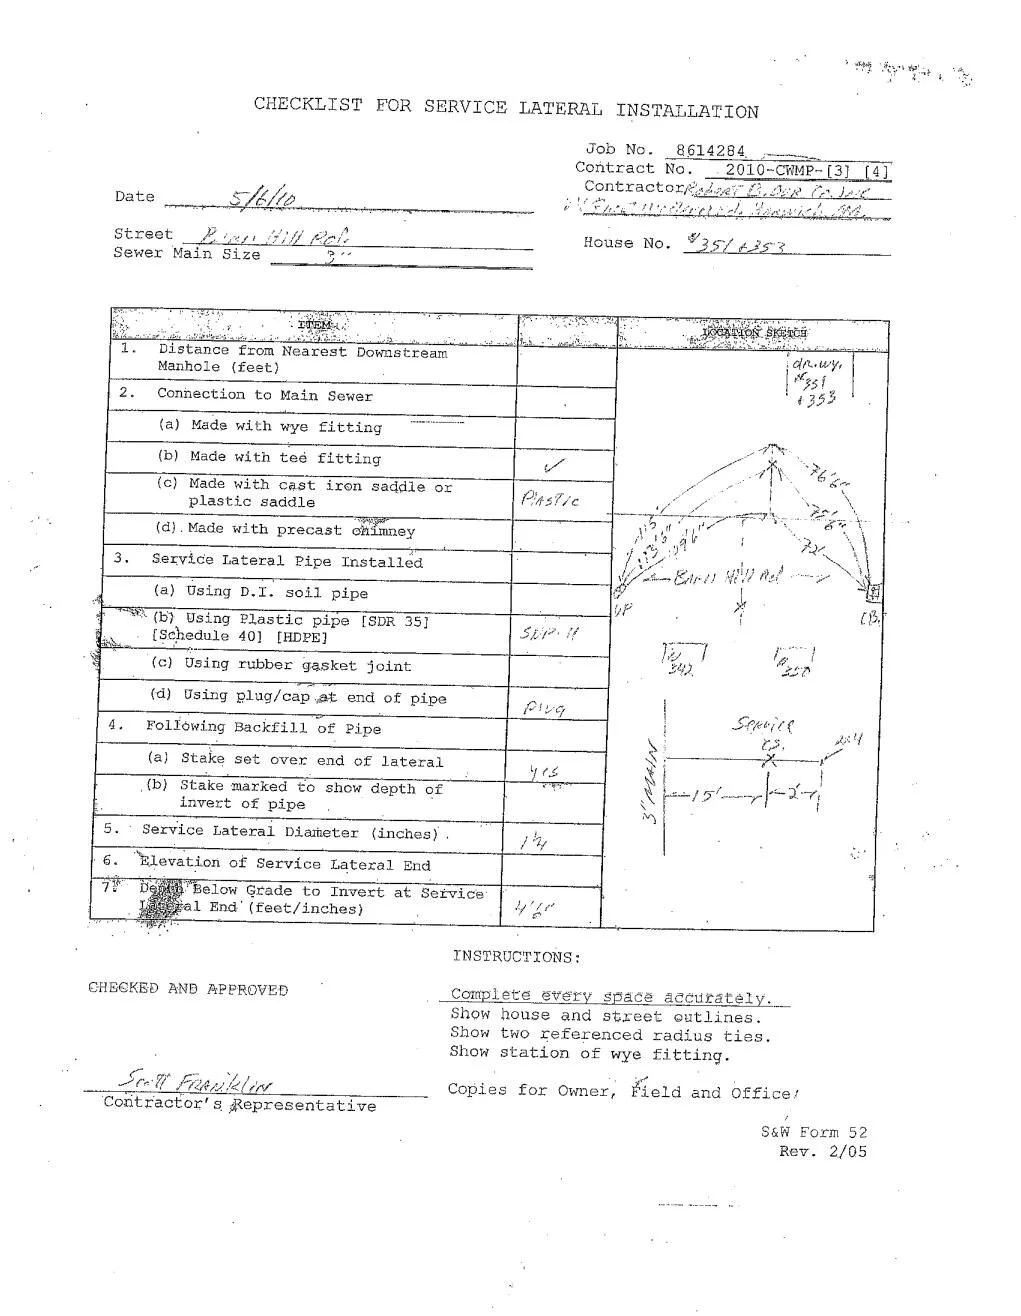 CHECKLIST FOR SERVICE LATERAL INSTALLATION
Job No. 8614284
Contract No. 2010-CWMP-[3] [4]
Contractor Robert B. Our Co. Inc
Harwich, MA.
Date 5/6/10
Street Hill Rd.
Sewer Main Size 3"
House No. #351 + 353
ITEM
LOCATION SKETCH
1. Distance from Nearest Downstream
Manhole (feet)
2. Connection to Main Sewer
(a) Made with wye fitting
(b) Made with tee fitting ✓
(c) Made with cast iron saddle or
plastic saddle PLASTIC
(d) Made with precast chimney
3. Service Lateral Pipe Installed
(a) Using D.I. soil pipe
(b) Using Plastic pipe [SDR 35]
[Schedule 40] [HDPE]
(c) Using rubber gasket joint
(d) Using plug/cap at end of pipe Plug
4. Following Backfill of Pipe
(a) Stake set over end of lateral yes
(b) Stake marked to show depth of
invert of pipe
5. Service Lateral Diameter (inches) 1¼
6. Elevation of Service Lateral End
7. Depth Below Grade to Invert at Service
Lateral End (feet/inches) 4'6"
dr.wy.
#351
+353
76'6"
75'
6"
72'
113'
113'5"
Hill Rd
UP
CB
#342
#350
Service
C.S.
3" MAIN
15'
2'
INSTRUCTIONS:
CHECKED AND APPROVED
Complete every space accurately.
Show house and street outlines.
Show two referenced radius ties.
Show station of wye fitting.
Scott Franklin
Contractor's Representative
Copies for Owner, Field and Office
S&W Form 52
Rev. 2/05